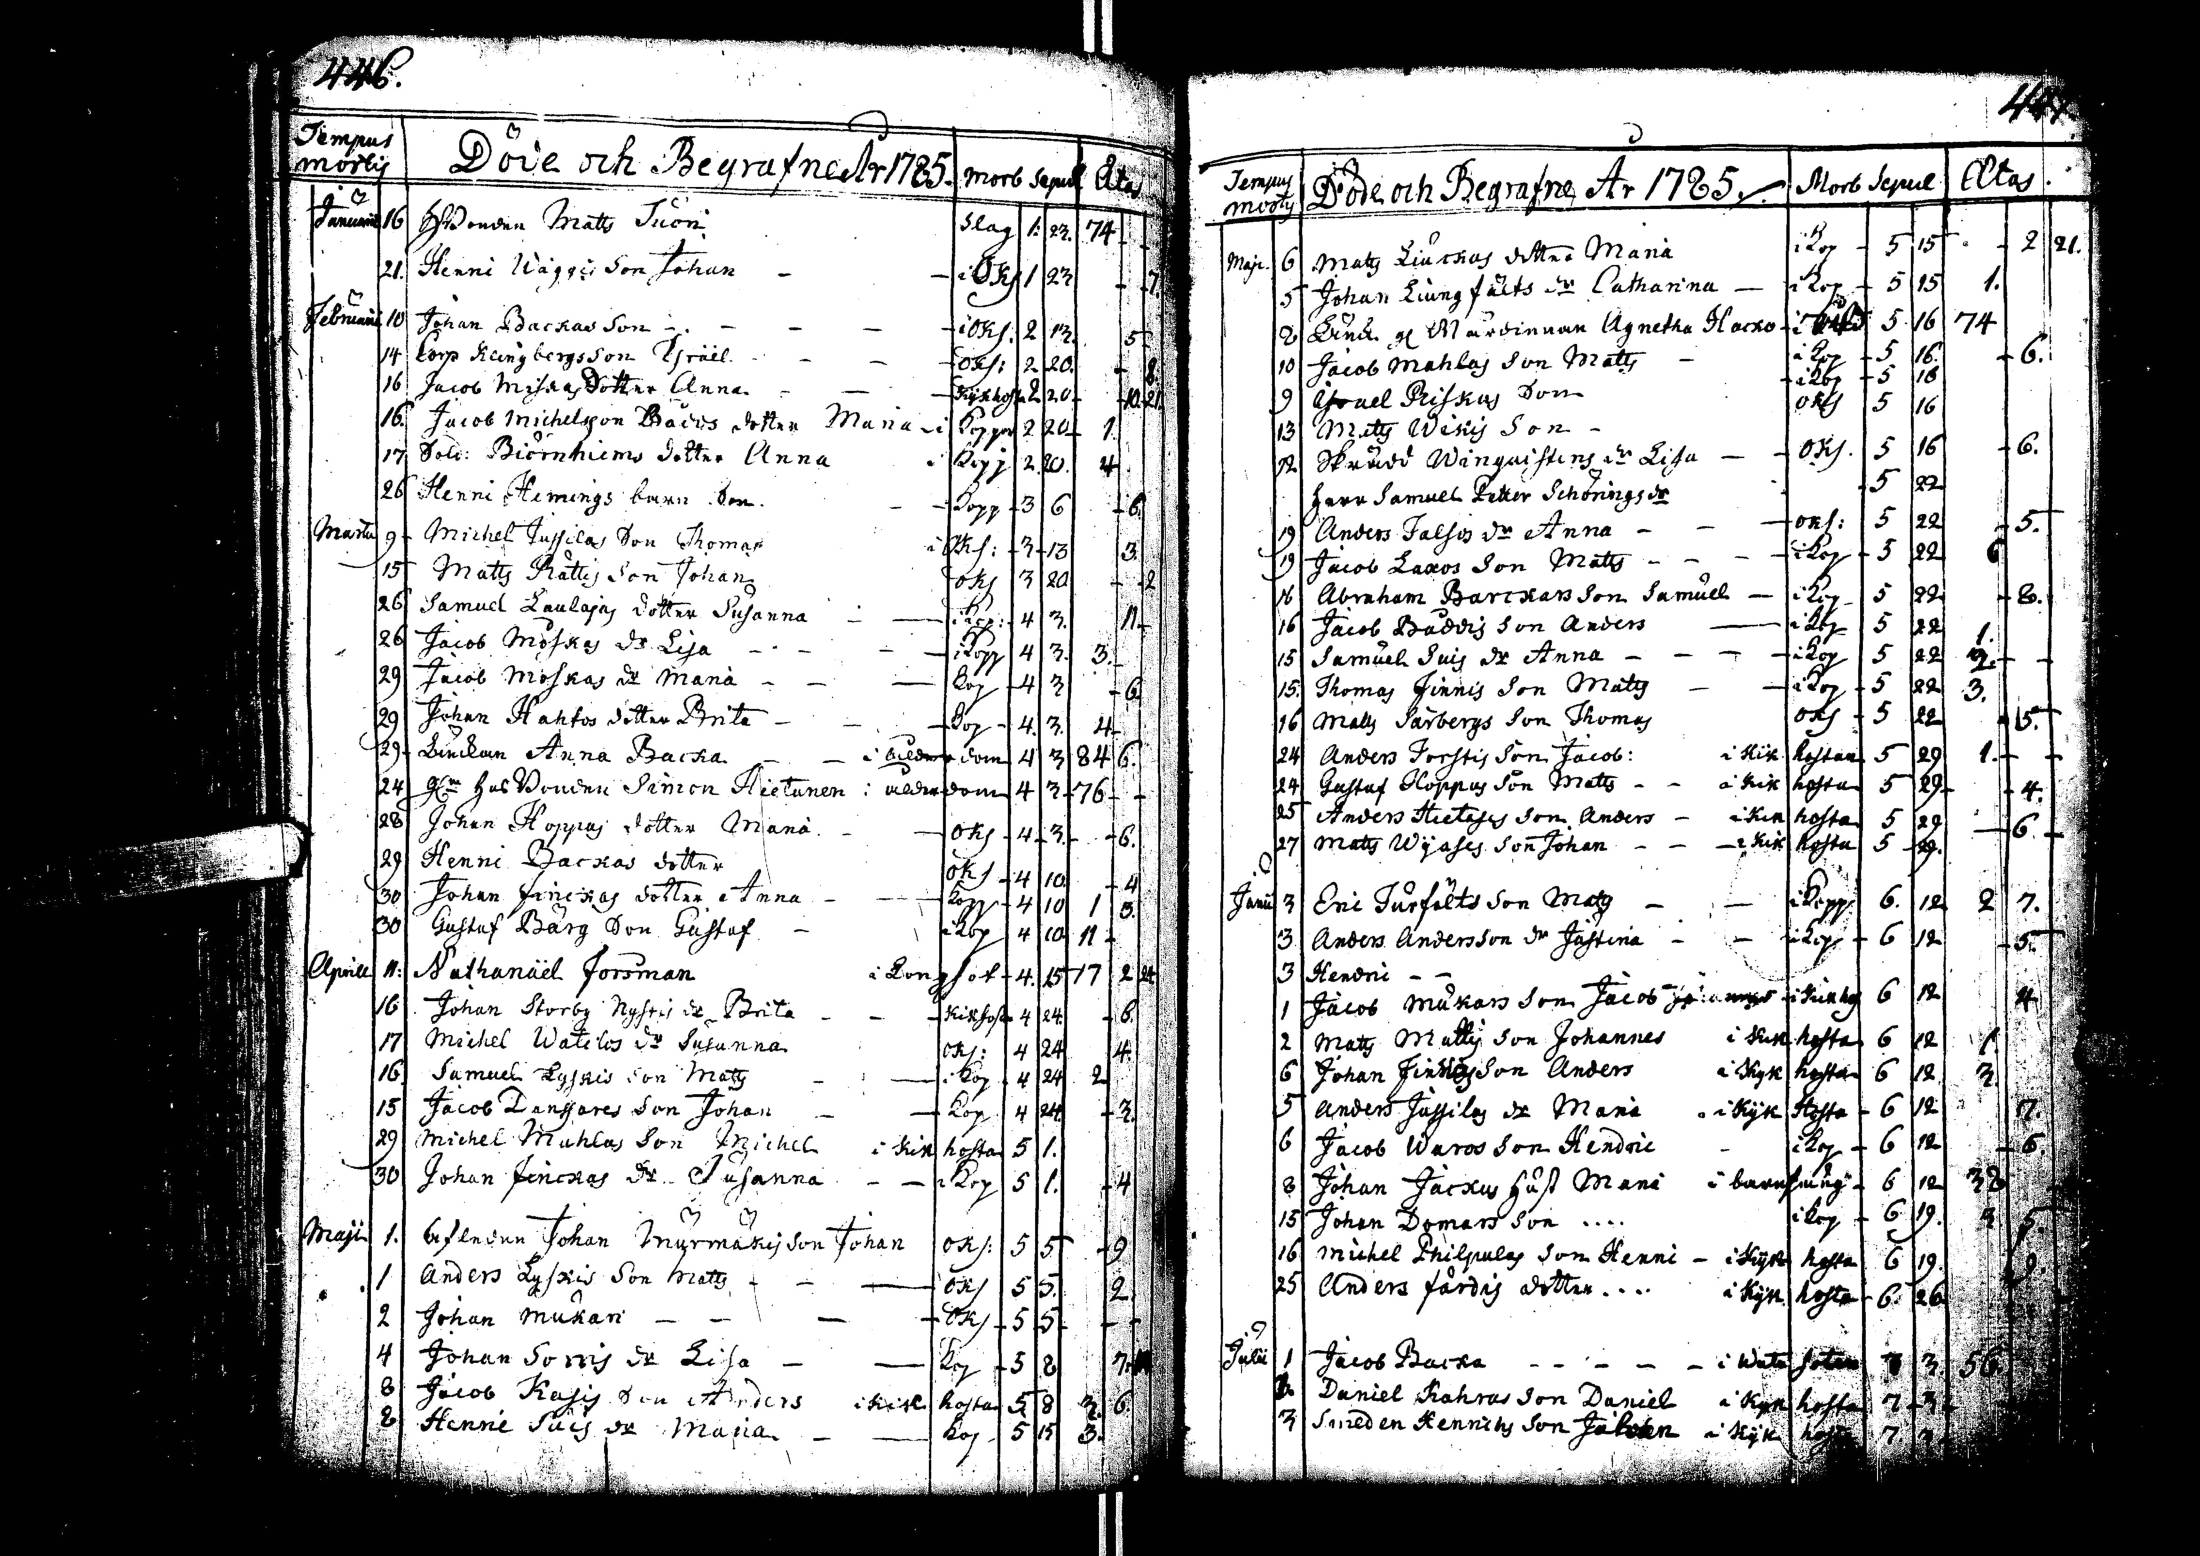 446.
Tempus mortis Döde och Begrafne År 1785. Morb Sepul Ætas
Januarii 16 Husbonden Matts Tuori Slag 1. 23. 74 - -
21. Henni Wäggis Son Johan - - i Oks 1 23 - 7.
Februarii 10 Johan Backas Son - . - - - i Oks: 2 13. 5
14 Corp Klingbergs Son Israël - - - Oks: 2 20. - 8.
16 Jacob Miskas Dotter Anna - - - Kikhosta 2 20 - 10 21
16. Jacob Michelsson Bäcks dotter Maria - i Koppor 2 20 1.
17 Sold: Biörnhiems dotter Anna i Kopp 2. 20. 4
26 Henni Hemings barn Son. - - Kopp - 3 6 - 6.
Martii 9 - Michel Jussilas Son Thomas i Oks: - 3 - 13 3.
15 Matts Rättis Son Johan Oks 3 20 - - 2
26 Samuel Laulajas dotter Susanna - - i Kop: - 4 3. 11 -
26 Jacob Moskas dr Lisa - - - - i Kopp 4 3. 3. -
29 Jacob Moskas dr Maria - - - Kop - 4 3 - 6
29 Johan Hahtos dotter Brita - - - Kop - 4. 3. 4 -
29 - Enckan Anna Backa - - i ålderdom 4 3 84 6.
24 gm Husbonden Simon Hietanen i ålderdom 4 3 - 76 - -
28 Johan Hoppas dotter Maria. - - Oks - 4 - 3 - - 6.
29 Henni Backas dotter Oks - 4 10 - 4
30 Johan Finckas dotter Anna - - Kopp - 4 10 1 3.
30 Gustaf Bärg Son Gustaf - i Kop 4 10 11 -
Aprill 11: Nathanäel Forsman i Longsot - 4. 15 17 2 24
16 Johan Storby Nystis dr Brita - - - Kikhosta 4 24 - 6.
17 Michel Watilos dr Susanna Oks: 4 24 4.
16. Samuel Lyskis Son Matts - - i Kop - 4 24 2
15 Jacob Danssares Son Johan - - Kop 4 24. - 3.
29 Michel Mahlas Son Michel i Kik hosta 5 1.
30 Johan Finckas dr Susanna - - i Kop 5 1. - 4
Maji 1. Johan Murmäkis Son Johan Oks: 5 5 - 9
1 Anders Lyskis Son Matts - - - Oks 5 5. 2
2 Johan Mukari - - - Oks - 5 - 5 - - -
4 Johan Sorris dr Lisa - - Kop - 5 8 7.
8 Jacob Kasis Son Anders i Kik hosta 5 8 3. 6.
8 Henni Suis dr Maria. - - Kop - 5 15 3.
Tempus mortis Döde och Begrafne År 1785. Morb Sepul Ætas.
Maji. 6 Matts Liuckas dotter Maria i Kop - 5 15 - 2 21.
5 Johan Liungfälts dr Catharina - i Kop - 5 15 1.
8 Enck. Agnetha Hacko 5 16 74
10 Jacob Mahlas Son Matts - i Kop - 5 16. - 6.
9 Israel Riskas Son - i Kop - 5 16
13 Matts Wikis Son - Oks 5 16
12 Skrädd Winquistens dr Lisa - - Oks. 5 16 - 6.
Herr Samuel Petter Schörings dr - 5 22
19 Anders Falsos dr Anna - - - Oks: 5 22 - 5.
19 Jacob Laxos Son Matts - - - i Kop - 5 22 6
16 Abraham Barckars Son Samuel - i Kop 5 22 - 8.
16 Jacob Baddis Son Anders - i Kop 5 22 1.
15 Samuel Suis dr Anna - - - - i Kop 5 22 2. - -
15. Thomas Finnis Son Matts - - i Kop - 5 22 3.
16 Matts Särbergs Son Thomas Oks - 5 22 - 5.
24 Anders Forstis Son Jacob: i Kik hostan 5 29 1. - -
24 Gustaf Hoppus Son Matts - - i Kik hosta 5 29 - - 4.
25 Anders Hietases Son Anders - i Kik hosta 5 29 - 6 -
27 Matts Wyases Son Johan - - - i Kik hosta 5 - 29.
Junii 3 Eric Turfälts Son Matts - - i Kopp 6. 12 2 7.
3 Anders Andersson dr Justina - - i Kop - 6 12 - 5.
3 Hendri - -
1 Jacob Mukars Son Jacob i Kikho 6 12 4
2 Matts Mattis Son Johannes i Kik hosta 6 12 1.
6 Johan Finckas Son Anders i Kyk hosta 6 12 3
5 Anders Jussilas dr Maria i Kyk hosta - 6 12 7.
6 Jacob Waros Son Hendric - i Kop - 6 12 - 6.
8 Johan Jäckus Hust Maria i barnsäng - 6 12 38
15 Johan Domars Son .... i Kop - 6 19. 3 5.
16 Michel Philpulas Son Henni - i Kyk hosta 6 19. 9.
25 Anders Färdis dotter .... i Kyk hosta - 6. 26
Julii 1 Jacob Backa - - - - - i Watu soten 7 3. 56
Daniel Rahras Son Daniel i Kyk hosta 7 - 3 -
3 Smeden Hennich Son i Kyk hosta 7. 3.